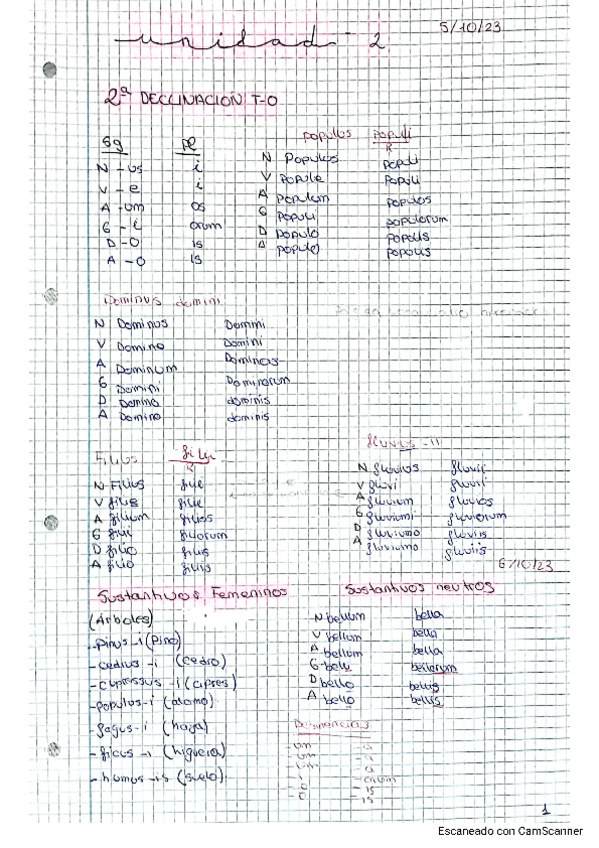 unidad 2
5/10/23
2ª DECLINACIÓN T-O
Sg Pl
N -us i
V -e i
A -um os
G -i orum
D -o is
A -o is
populus populi
R
N Populus Populi
V Popule Populi
A Populum Populos
G Populi populorum
D Populo Populis
A populo populis
Dominus domini
N Dominus Domini
V Domino Domini
A Dominum Dominos
G Domini Dominorum
D Domino dominis
A Domino dominis
Filius
R
N Filius
V filie
A filium filios
G filii filiorum
D filio filiis
A filio filiis
N fluvius fluvii
V fluvi fluvii
A fluvium fluvios
G fluviumi fluviorum
D fluviumo fluviis
A fluviumo fluviis
6/10/23
Sustantivos Femeninos
(Árboles)
-pinus -i (pino)
-cedrus -i (cedro)
-cupressus -i (cipres)
-populus -i (alamo)
-fagus -i (haya)
-ficus -i (higuera)
-humus -is (suelo)
Sustantivos neutros
N bellum bella
V bellum bella
A bellum bella
G belli bellorum
D bello bellis
A bello bellis
Desinencias
-um -a
-um -a
-um -a
-i -orum
-o -is
-o -is
1
Escaneado con CamScanner